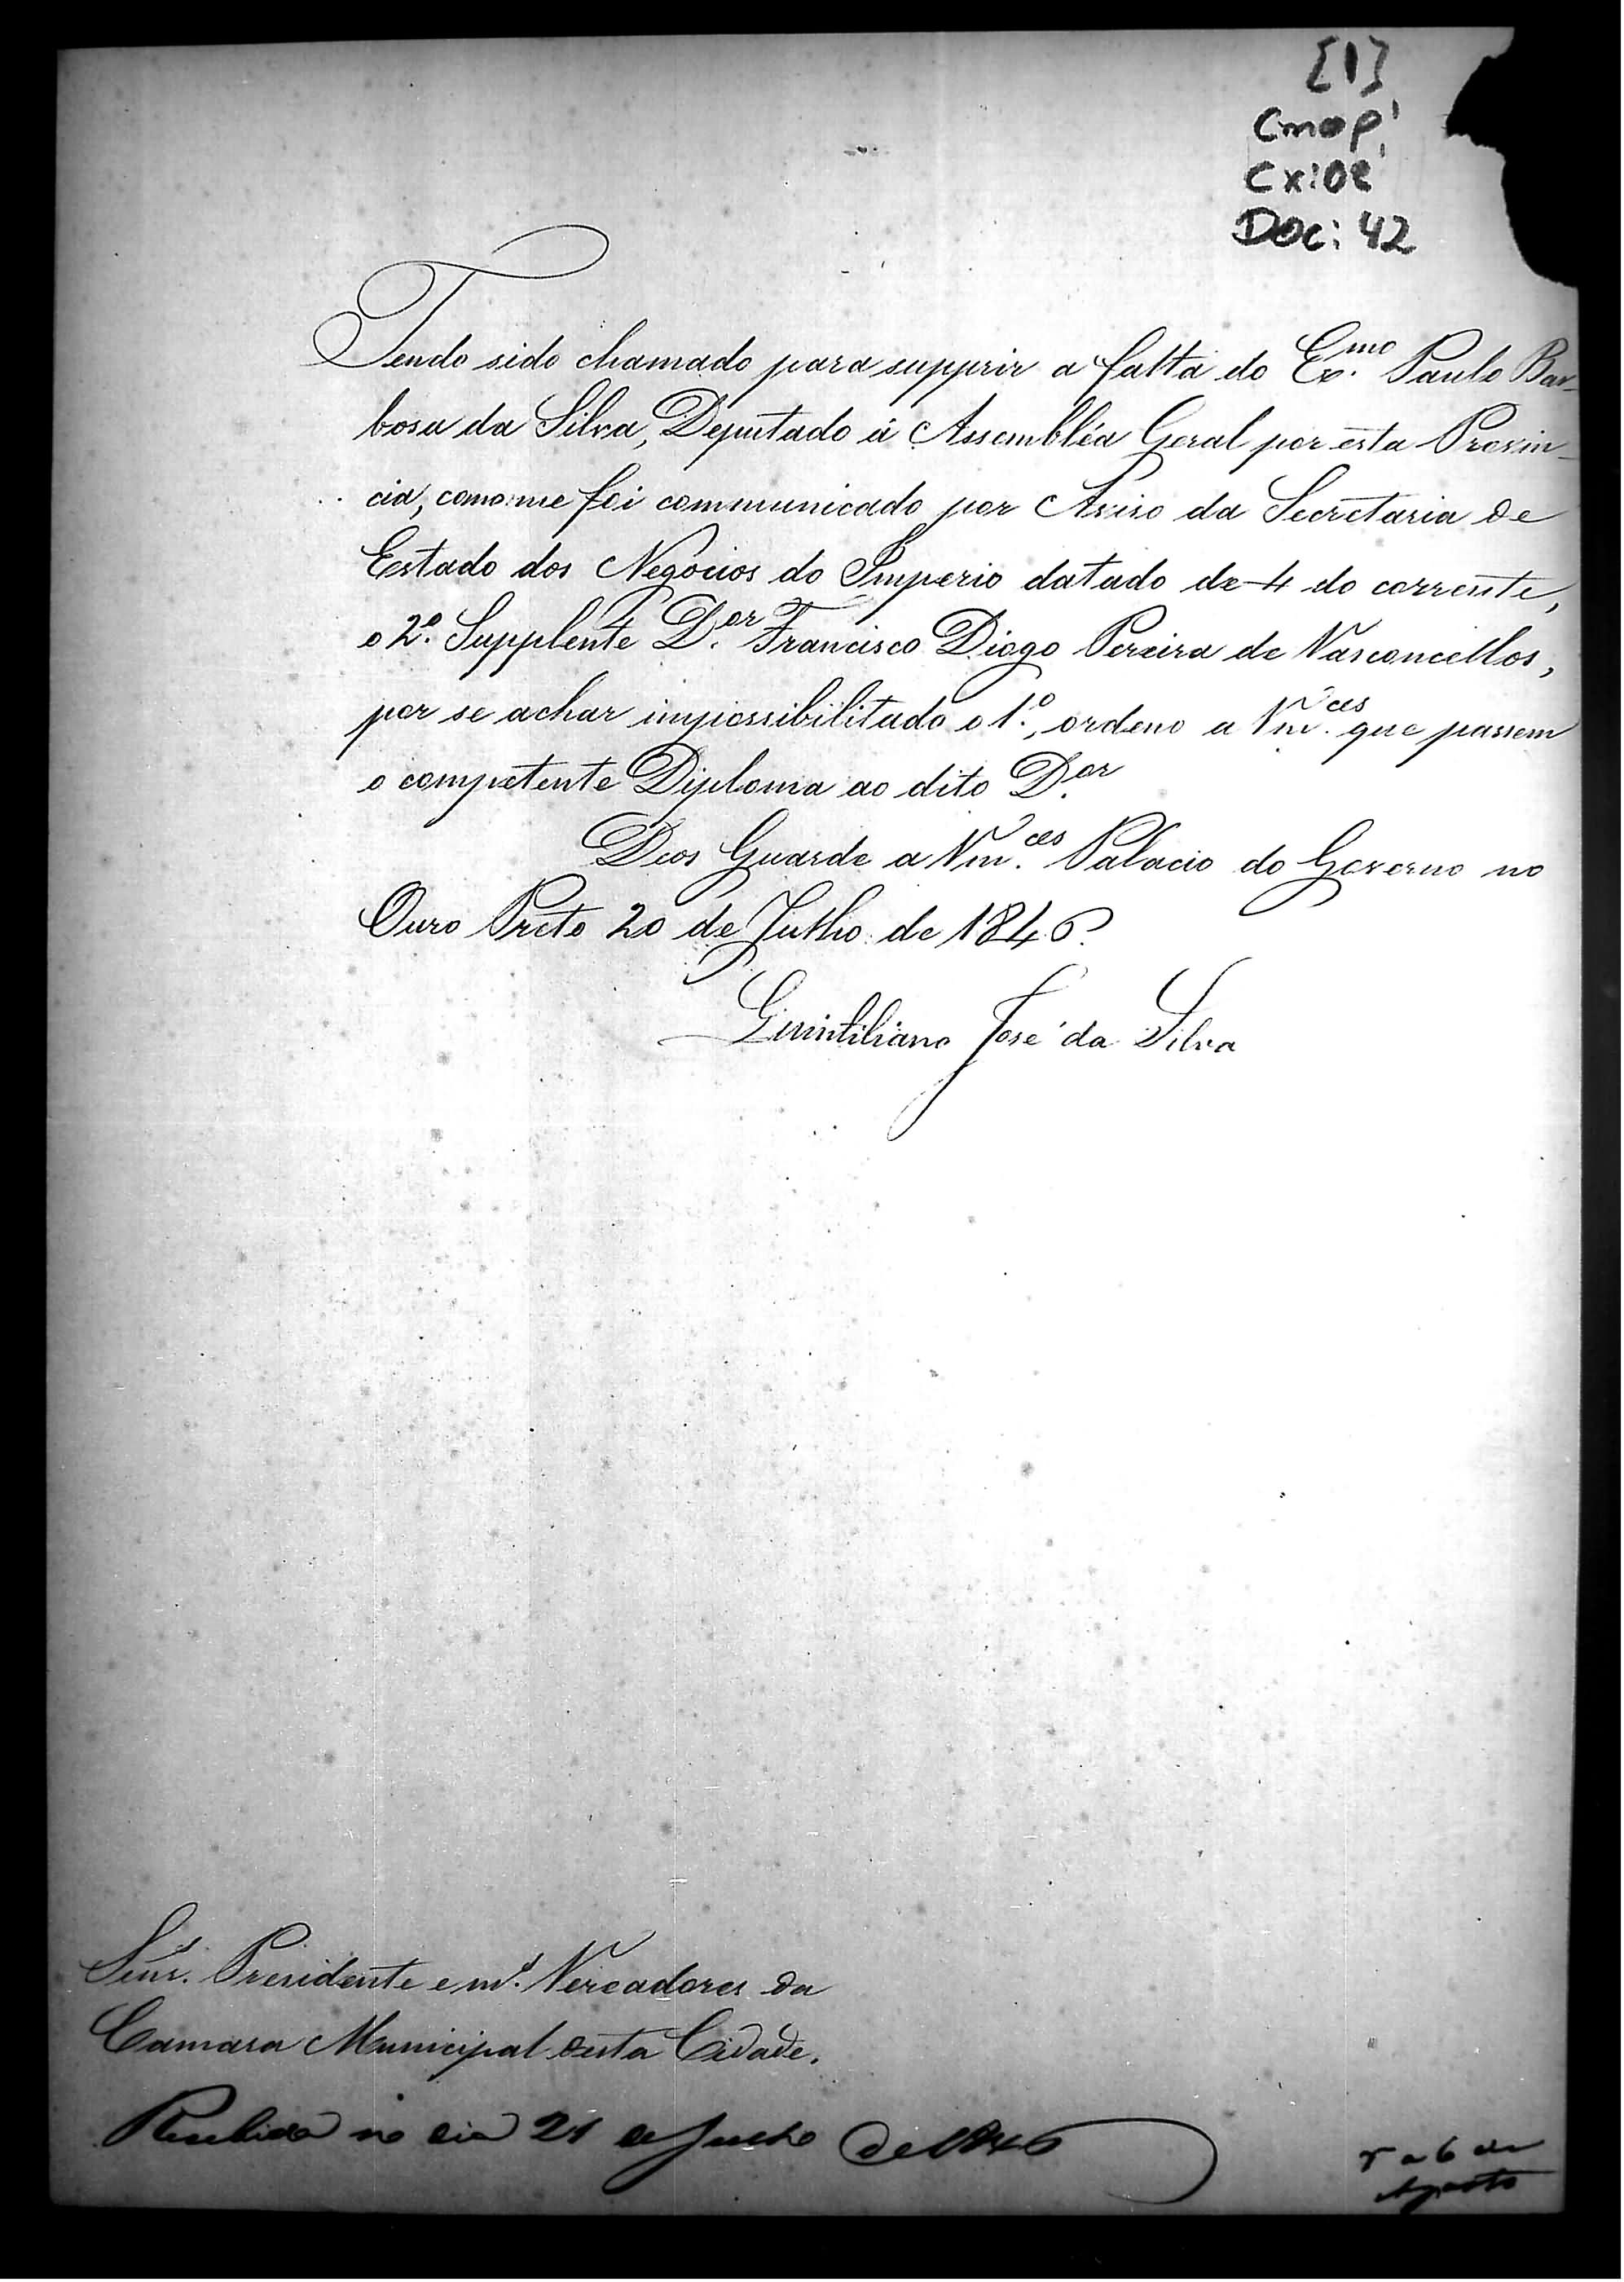 [1]
CMOP
Cx:02
Doc: 42
Tendo sido chamado para supprir a falta do Ex.mo Paulo Bar-
bosa da Silva, Deputado á Assembléa Geral por esta Provin-
cia, como me foi communicado por Aviso da Secretaria de
Estado dos Negocios do Imperio datado de 4 do corrente,
o 2.º Supplente D.or Francisco Diogo Pereira de Vasconcellos,
por se achar impossibilitado o 1.º, ordeno a Vm.ces que passem
o competente Diploma ao dito D.or
Deos Guarde a Vm.ces Palacio do Governo no
Ouro Preto 20 de Julho de 1846.
Quintiliano José da Silva
Snr.s Presidente e m.s Vereadores da
Camara Municipal desta Cidade.
Recebida no dia 21 de Julho de 1846
r a 6 de
Agosto